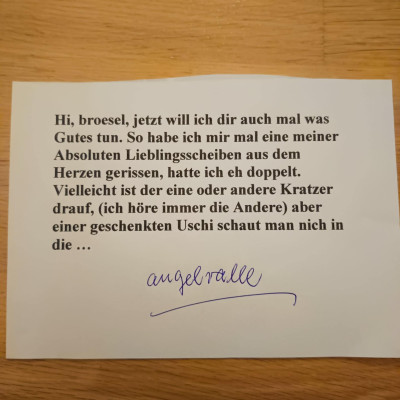 Hi, broesel, jetzt will ich dir auch mal was
Gutes tun. So habe ich mir mal eine meiner
Absoluten Lieblingsscheiben aus dem
Herzen gerissen, hatte ich eh doppelt.
Vielleicht ist der eine oder andere Kratzer
drauf, (ich höre immer die Andere) aber
einer geschenkten Uschi schaut man nich in
die …
angelralle